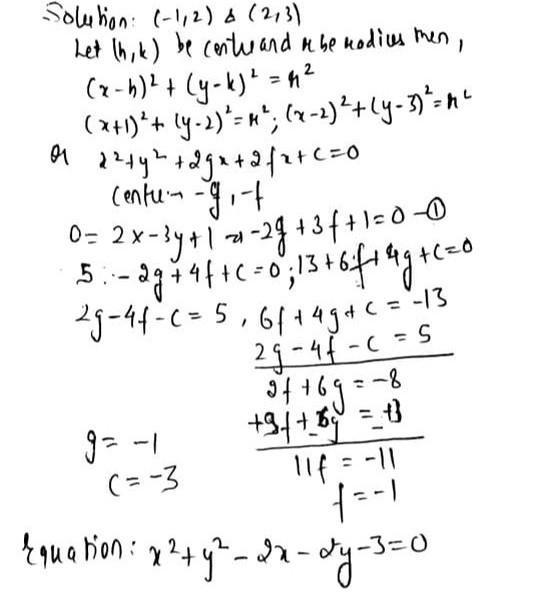 Solution: (-1,2) & (2,3)
Let (h,k) be centre and r be radius then,
(x-h)² + (y-k)² = r²
(x+1)² + (y-2)² = r²; (x-2)² + (y-3)² = r²
Or x²+y²+2gx+2fx+c=0
Centre → -g, -f
0 = 2x-3y+1 ⇒ -2g+3f+1=0 -①
5 - 2g+4f+c=0; 13+6f+4g+c=0
2g-4f-c=5, 6f+4g+c=-13
2g-4f-c=5
2f+6g=-8
11f=-11
g=-1
f=-1
c=-3
Equation: x²+y²-2x-2y-3=0